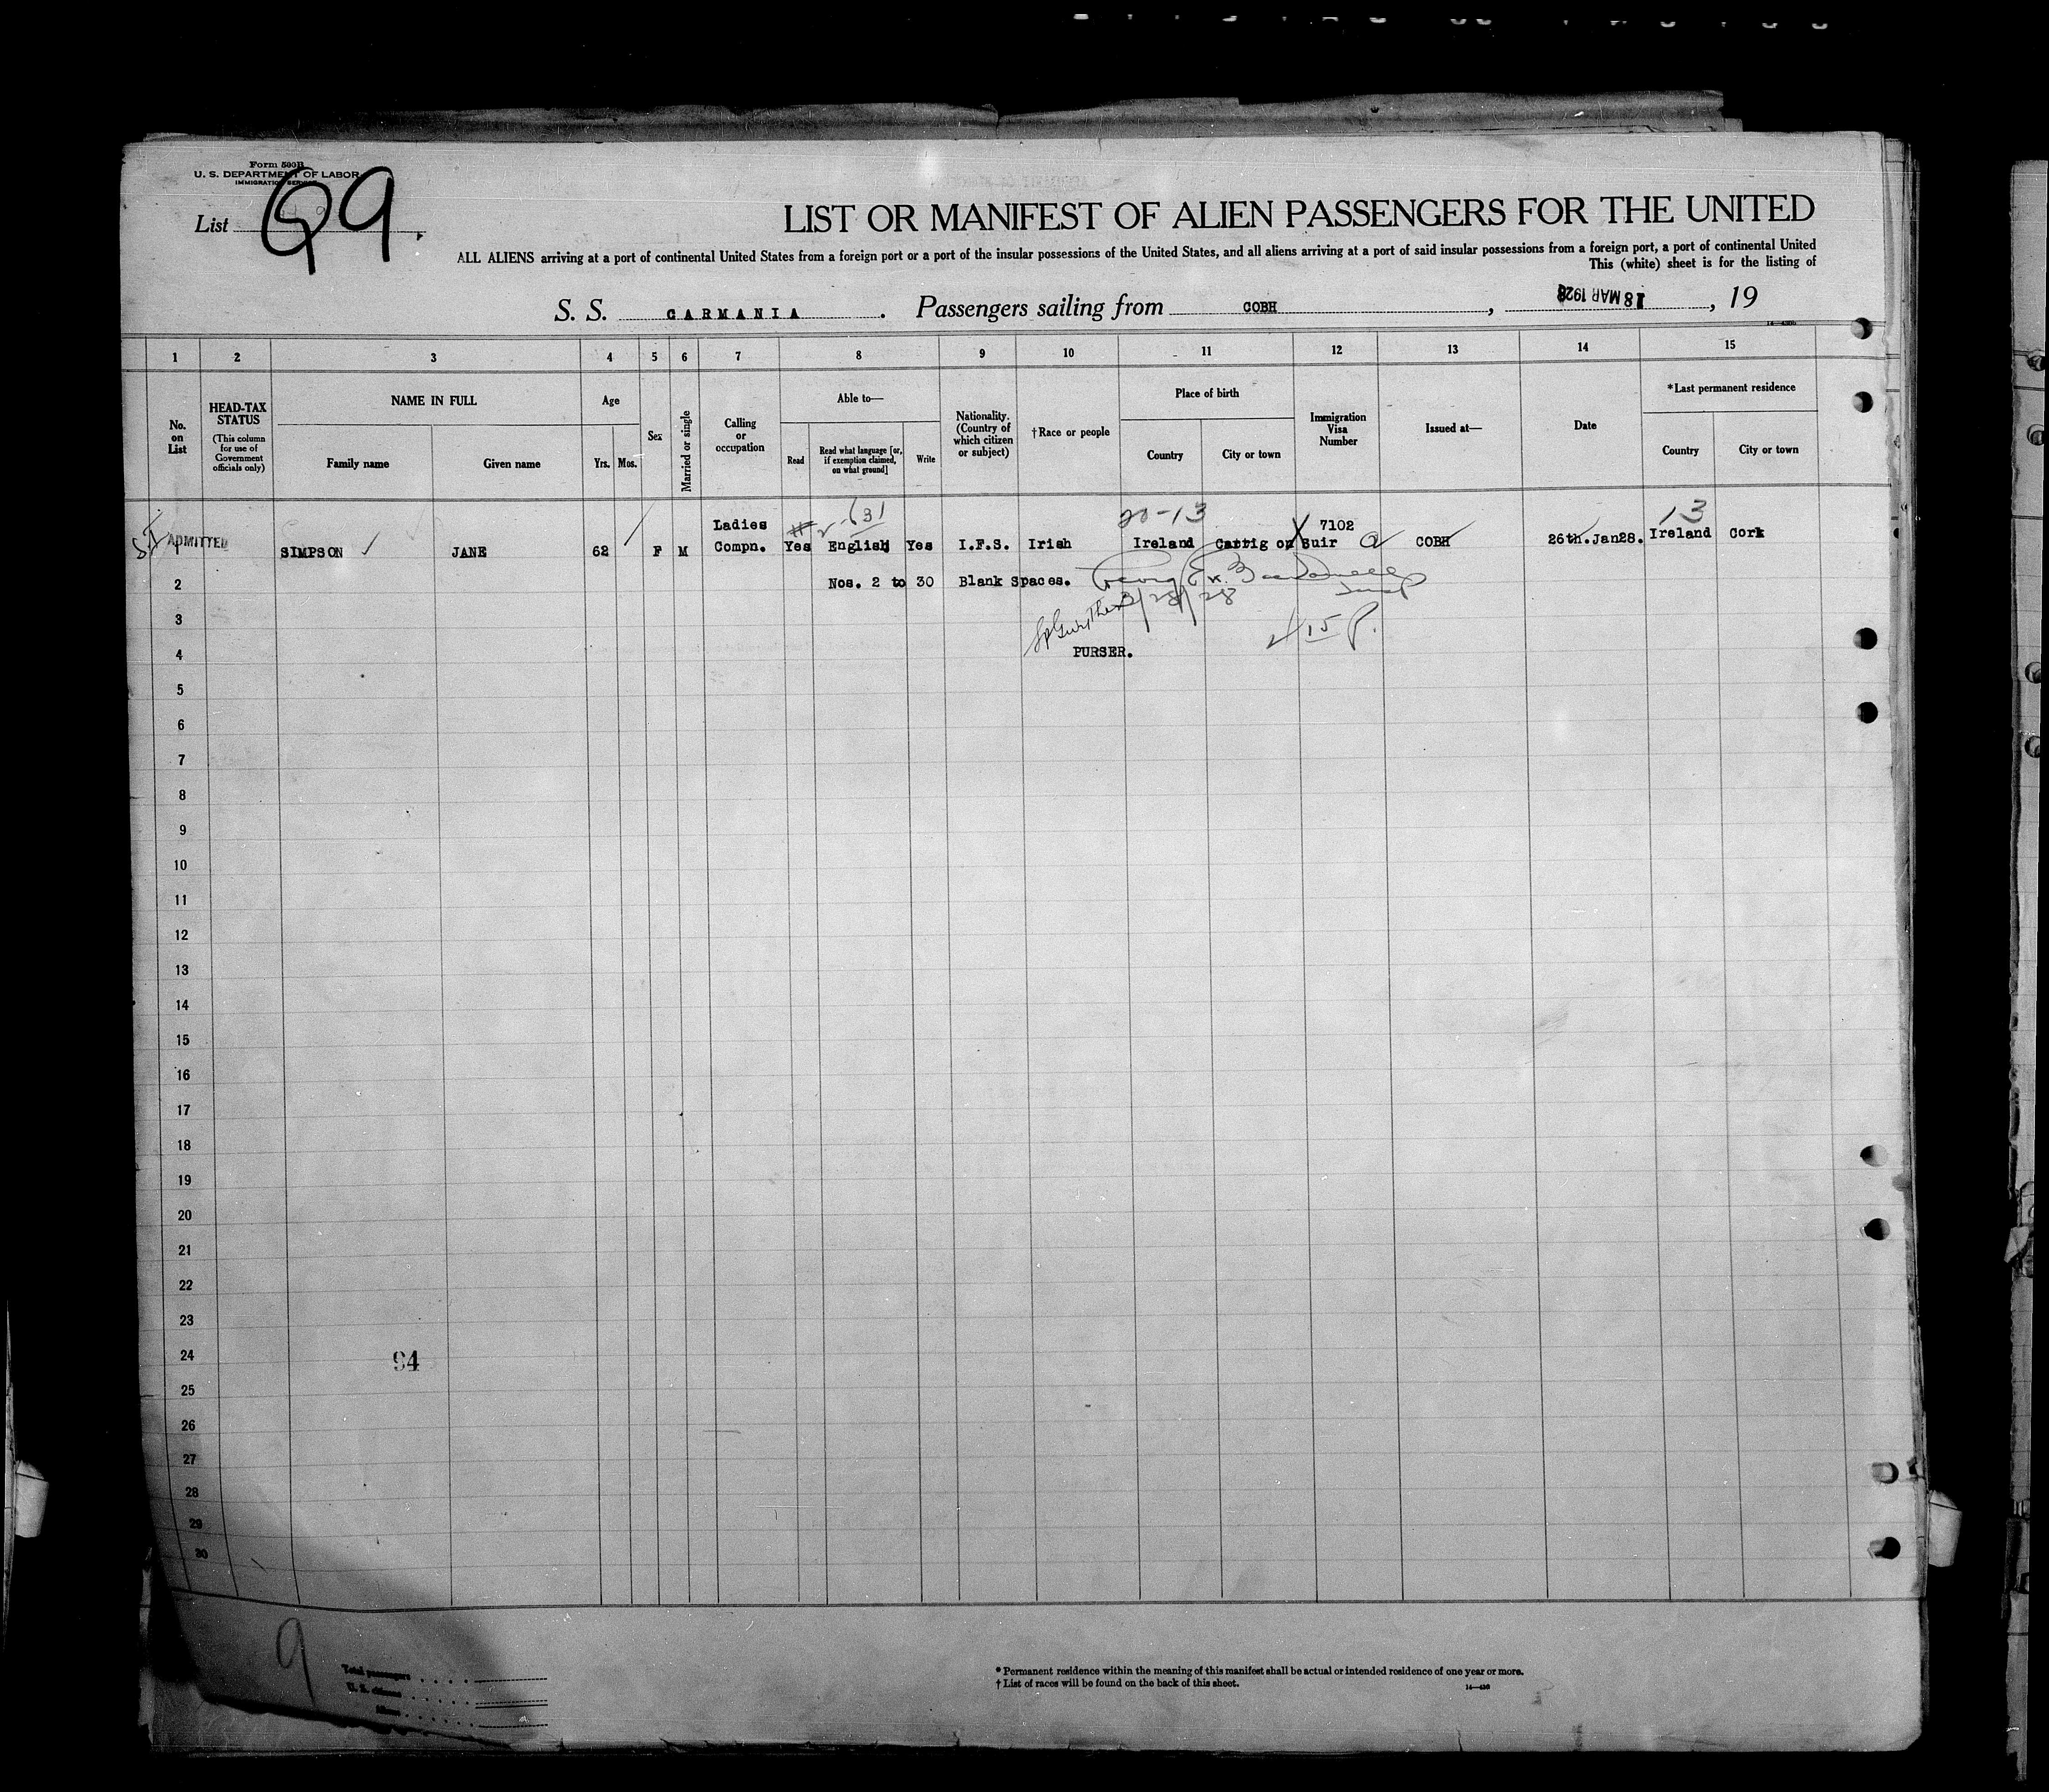 Form 500B
U. S. DEPARTMENT OF LABOR
IMMIGRATION SERVICE
List 99.
LIST OR MANIFEST OF ALIEN PASSENGERS FOR THE UNITED
ALL ALIENS arriving at a port of continental United States from a foreign port or a port of the insular possessions of the United States, and all aliens arriving at a port of said insular possessions from a foreign port, a port of continental United
This (white) sheet is for the listing of
S. S. CARMANIA. Passengers sailing from COBH, 18 MAR 1928, 19
1 2 3 4 5 6 7 8 9 10 11 12 13 14 15
No. on List
HEAD-TAX STATUS (This column for use of Government officials only)
NAME IN FULL
Family name
Given name
Age
Yrs. Mos.
Sex
Married or single
Calling or occupation
Able to—
Read
Read what language [or, if exemption claimed, on what ground]
Write
Nationality. (Country of which citizen or subject)
†Race or people
Place of birth
Country
City or town
Immigration Visa Number
Issued at—
Date
*Last permanent residence
Country
City or town
20-13 13
Ladies 7102
ADMITTED 1 SIMPSON JANE 62 F M Compn. Yes English Yes I.F.S. Irish Ireland Carrig on Suir COBH 26th.Jan28. Ireland Cork
2 Nos. 2 to 30 Blank Spaces.
3 3/28/28
4 PURSER.
5
6
7
8
9
10
11
12
13
14
15
16
17
18
19
20
21
22
23
24 94
25
26
27
28
29
30
9
Total passengers
U. S. citizens
Aliens
* Permanent residence within the meaning of this manifest shall be actual or intended residence of one year or more.
† List of races will be found on the back of this sheet.